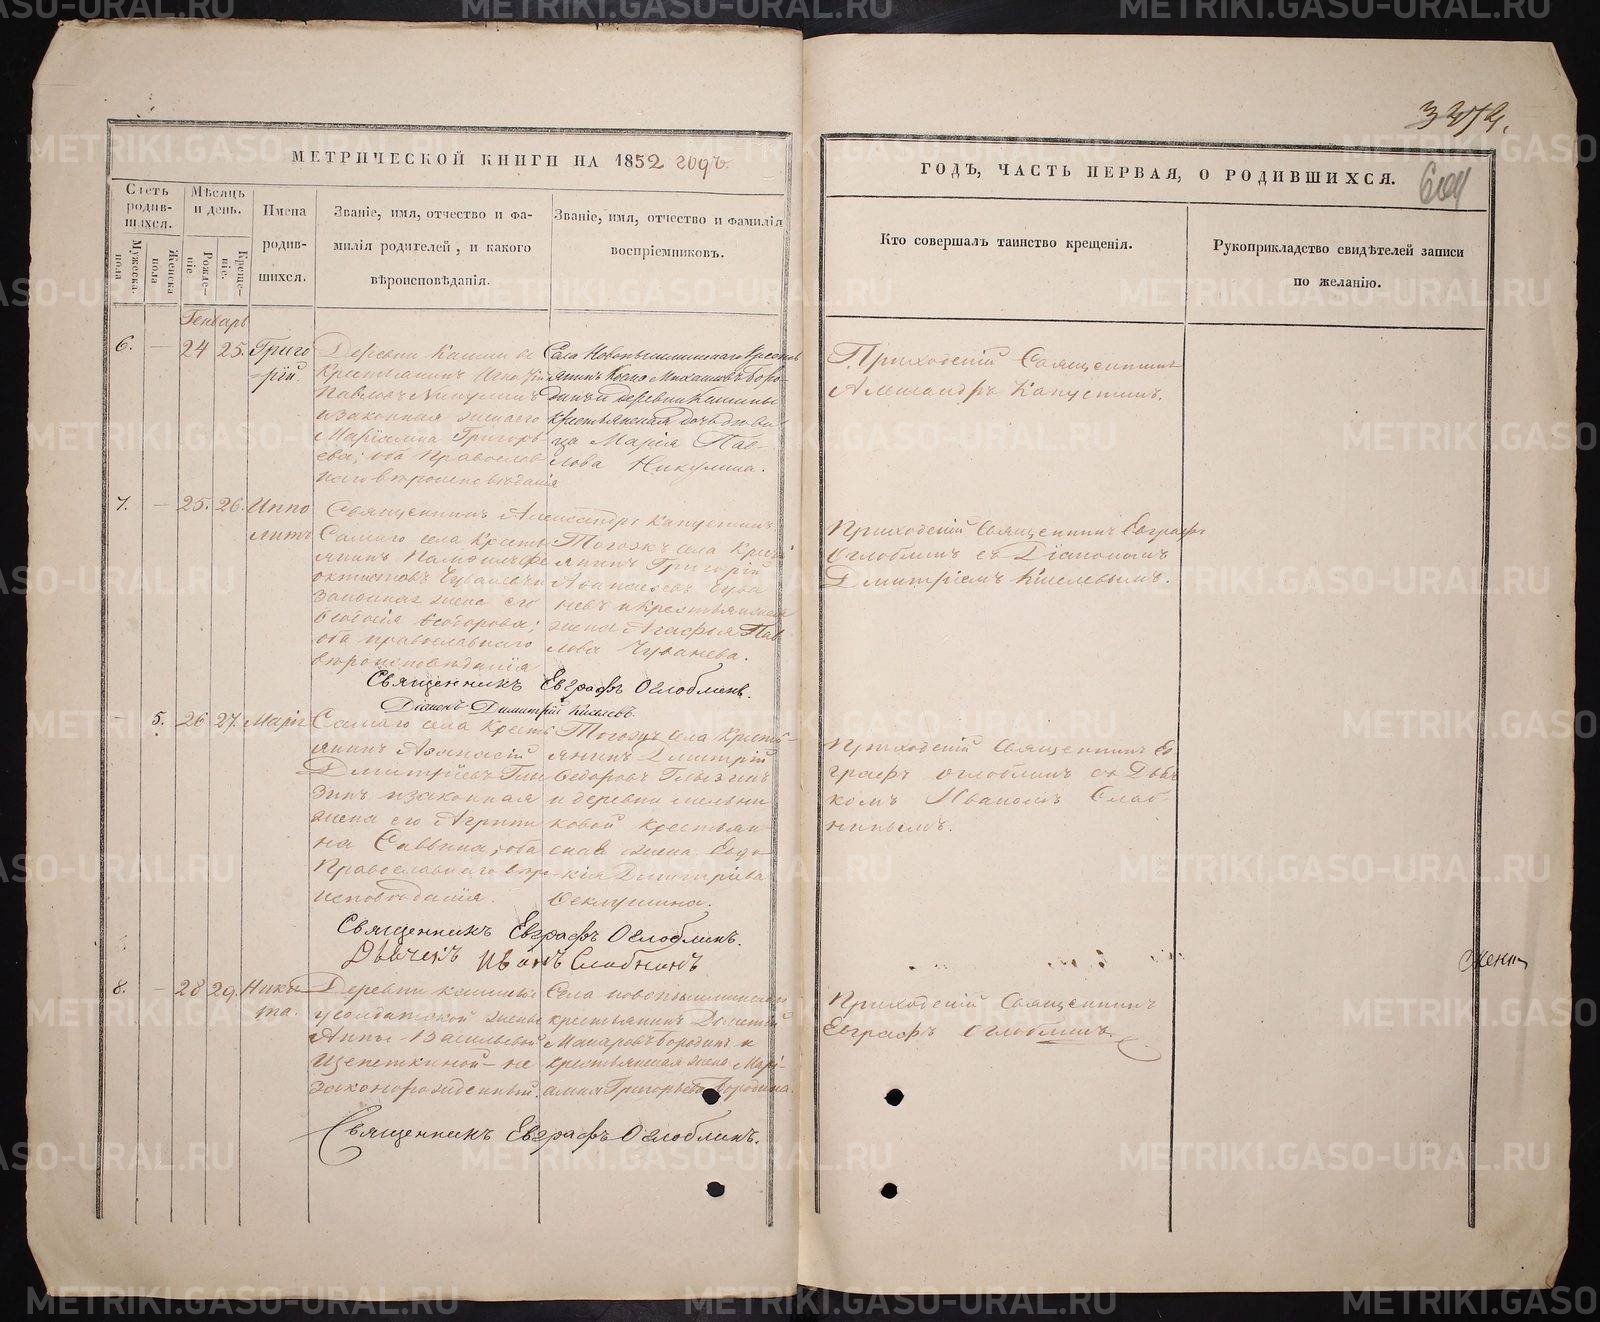 3272.
604
МЕТРИЧЕСКОЙ КНИГИ НА 1852 годъ.
ГОДЪ, ЧАСТЬ ПЕРВАЯ, О РОДИВШИХСЯ.
Счетъ родив-
шихся.
Мужеска пола
Женска пола
Мѣсяцъ и день.
Рожде-
ніе
Креще-
ніе.
Имена
родив-
шихся.
Званіе, имя, отчество и фа-
милія родителей, и какого
вѣроисповѣданія.
Званіе, имя, отчество и фамилія
воспріемниковъ.
Кто совершалъ таинство крещенія.
Рукоприкладство свидѣтелей записи
по желанію.
Генварь
6. — 24 25. Григо
рій
Деревни Кашиной
Крестьянинъ Игнатій
Павловъ Никулинъ
и законная жена его
Григорь
ева; оба Православ
наго вѣроисповѣданія
Села Новопышминскаго Кресть
янинъ Козма Михаиловъ Боро-
динъ и деревни Кашины
крестьянская дочь дѣви
ца Марія Пав-
лова Никулина.
Приходскій Священникъ
Александръ Капустинъ.
7. — 25. 26. Иппо
литъ
Священникъ Александръ Капустинъ
Самаго села Кресть
янинъ
Чуваневъ и
законная жена его
Ѳеодорова;
оба православнаго
вѣроисповѣданія
Тогожъ села Кресть
янинъ Григорій
Аѳанасьевъ Чува
невъ и Крестьянская
жена Агафья Пав
лова Чуванева.
Приходскій Священникъ Евграфъ
Оглоблинъ съ Діакономъ
Димитріемъ Киселевымъ.
Священникъ Евграфъ Оглоблинъ.
Діаконъ Димитрій Киселевъ.
— 5. 26 27. Марія
Самаго села Кресть
янинъ Аѳанасій
Димитріевъ Глы
зинъ и законная
жена его Агрипи
на Саввина, оба
Православнаго вѣро
исповѣданія.
Тогожъ села Кресть-
янинъ Димитрій
Ѳедоровъ Глызинъ
и деревни Мельни
ковой крестьян
ская жена Евдо
кія Димитріева
Ѳеклушина.
Приходскій Священникъ Ев
графъ Оглоблинъ съ Дьяч
комъ Иваномъ Слаб-
нинымъ.
Священникъ Евграфъ Оглоблинъ.
Дьячекъ Иванъ Слабнинъ
8. — 28 29. Ники
та.
Деревни Кашиной
у солдатской жены
Анны Васильевой
Щепеткиной — не
законорожденный.
Села Новопышминскаго
крестьянинъ
Макаровъ Бородинъ и
крестьянская жена Марі-
амія Григорьева Бородина.
Приходскій Священникъ
Евграфъ Оглоблинъ
Священникъ Евграфъ Оглоблинъ.
METRIKI.GASO-URAL.RU